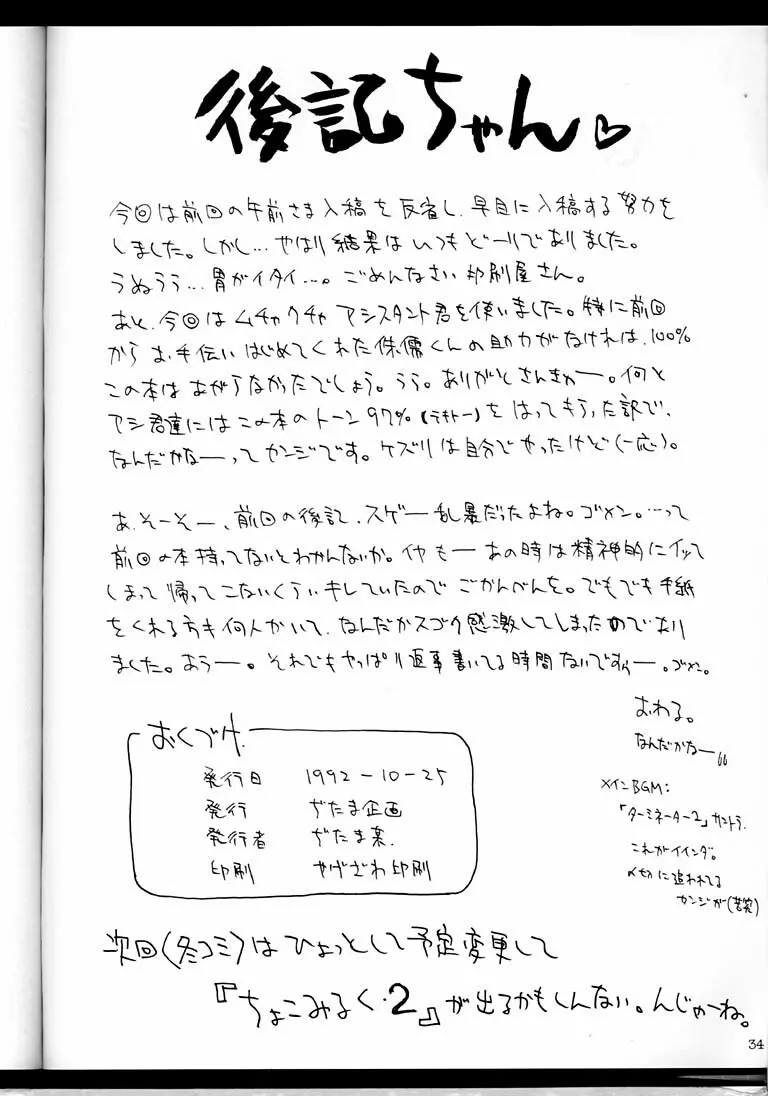 後記ちゃん♡
今回は前回の午前さま入稿を反省し、早目に入稿する努力を
しました。しかし…やはり結果はいつもどーりでありました。
うぬうう…胃がイタイ…。ごめんなさい印刷屋さん。
あと、今回はムチャクチャアシスタント君を使いました。特に前回
からお手伝いはじめてくれた侏儒くんの助力がなければ、100%
この本はあがらなかったでしょう。うう。ありがとさんきゅー。何と
アシ君達にはこの本のトーン97%(テキトー)をはってもらった訳で、
なんだかなーってカンジです。ケズリは自分でやったけど(一応)。
あ、そーそー、前回の後記、スゲー乱暴だったよね。ゴメン。…って
前回の本持ってないとわかんないか。イヤもーあの時は精神的にイッて
しまって帰ってこないくらいキしていたので ごかんべんを。でもでも手紙
をくれる方も何人かいて、なんだかスゴク感激してしまったのであり
ました。おうー。それでもやっぱり返事書いてる時間ないですぅー。ゴメン。
おわる。
なんだかなー
メインBGM:
「ターミネーター2」サントラ.
これがイインダ。
〆切に追われてる
カンジが(苦笑)
おくづけ.
発行日 1992-10-25
発行 ぢたま企画
発行者 ぢたま某.
印刷 やげざわ印刷
次回(冬コミ)はひょっとして予定変更して
『ちょこみるく・2』が出るかもしんない。んじゃーね。
34